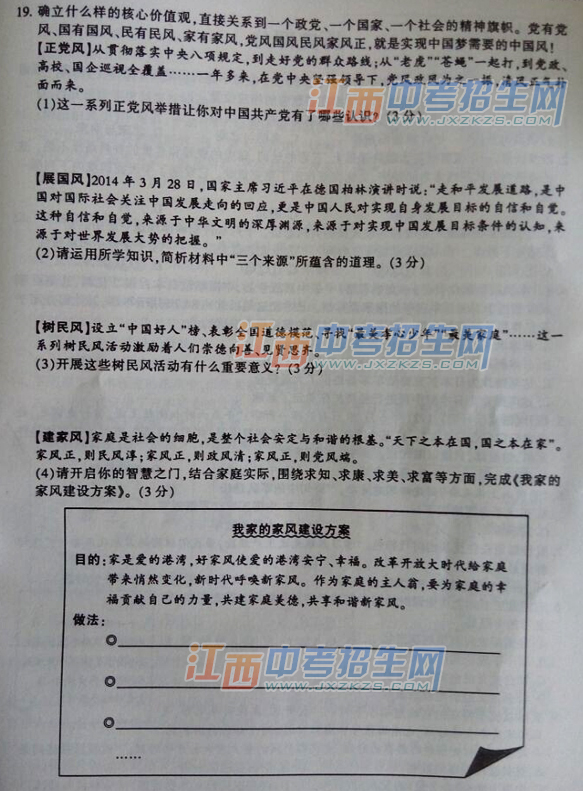 19. 确立什么样的核心价值观,直接关系到一个政党、一个国家、一个社会的精神旗帜。党有党
风、国有国风、民有民风、家有家风,党风国风民风家风正,就是实现中国梦需要的中国风!
【正党风】从贯彻落实中央八项规定,到走好党的群众路线;从“老虎”“苍蝇”一起打,到党政、
高校、国企巡视全覆盖……一年多来,在党中央坚强领导下,党风政风为之一振,清风正气扑
面而来。
(1)这一系列正党风举措让你对中国共产党有了哪些认识?(3分)
【展国风】2014年3月28日,国家主席习近平在德国柏林演讲时说:“走和平发展道路,是中
国对国际社会关注中国发展走向的回应,更是中国人民对实现自身发展目标的自信和自觉。
这种自信和自觉,来源于中华文明的深厚渊源,来源于对实现中国发展目标条件的认知,来
源于对世界发展大势的把握。”
(2)请运用所学知识,简析材料中“三个来源”所蕴含的道理。(3分)
【树民风】设立“中国好人”榜、表彰全国道德模范、寻找“最美孝心少年”“最美家庭”……这一
系列树民风活动激励着人们崇德向善、见贤思齐。
(3)开展这些树民风活动有什么重要意义?(3分)
【建家风】家庭是社会的细胞,是整个社会安定与和谐的根基。“天下之本在国,国之本在家”。
家风正,则民风淳;家风正,则政风清;家风正,则党风端。
(4)请开启你的智慧之门,结合家庭实际,围绕求知、求康、求美、求富等方面,完成《我家的
家风建设方案》。(3分)
我家的家风建设方案
目的:家是爱的港湾,好家风使爱的港湾安宁、幸福。改革开放大时代给家庭
带来悄然变化,新时代呼唤新家风。作为家庭的主人翁,要为家庭的幸
福贡献自己的力量,共建家庭美德,共享和谐新家风。
做法:
◎
◎
◎
……
江西中考招生网
WWW.JXZKZS.COM
江西中考招生网
WWW.JXZKZS.COM
江西中考招生网
WWW.JXZKZS.COM